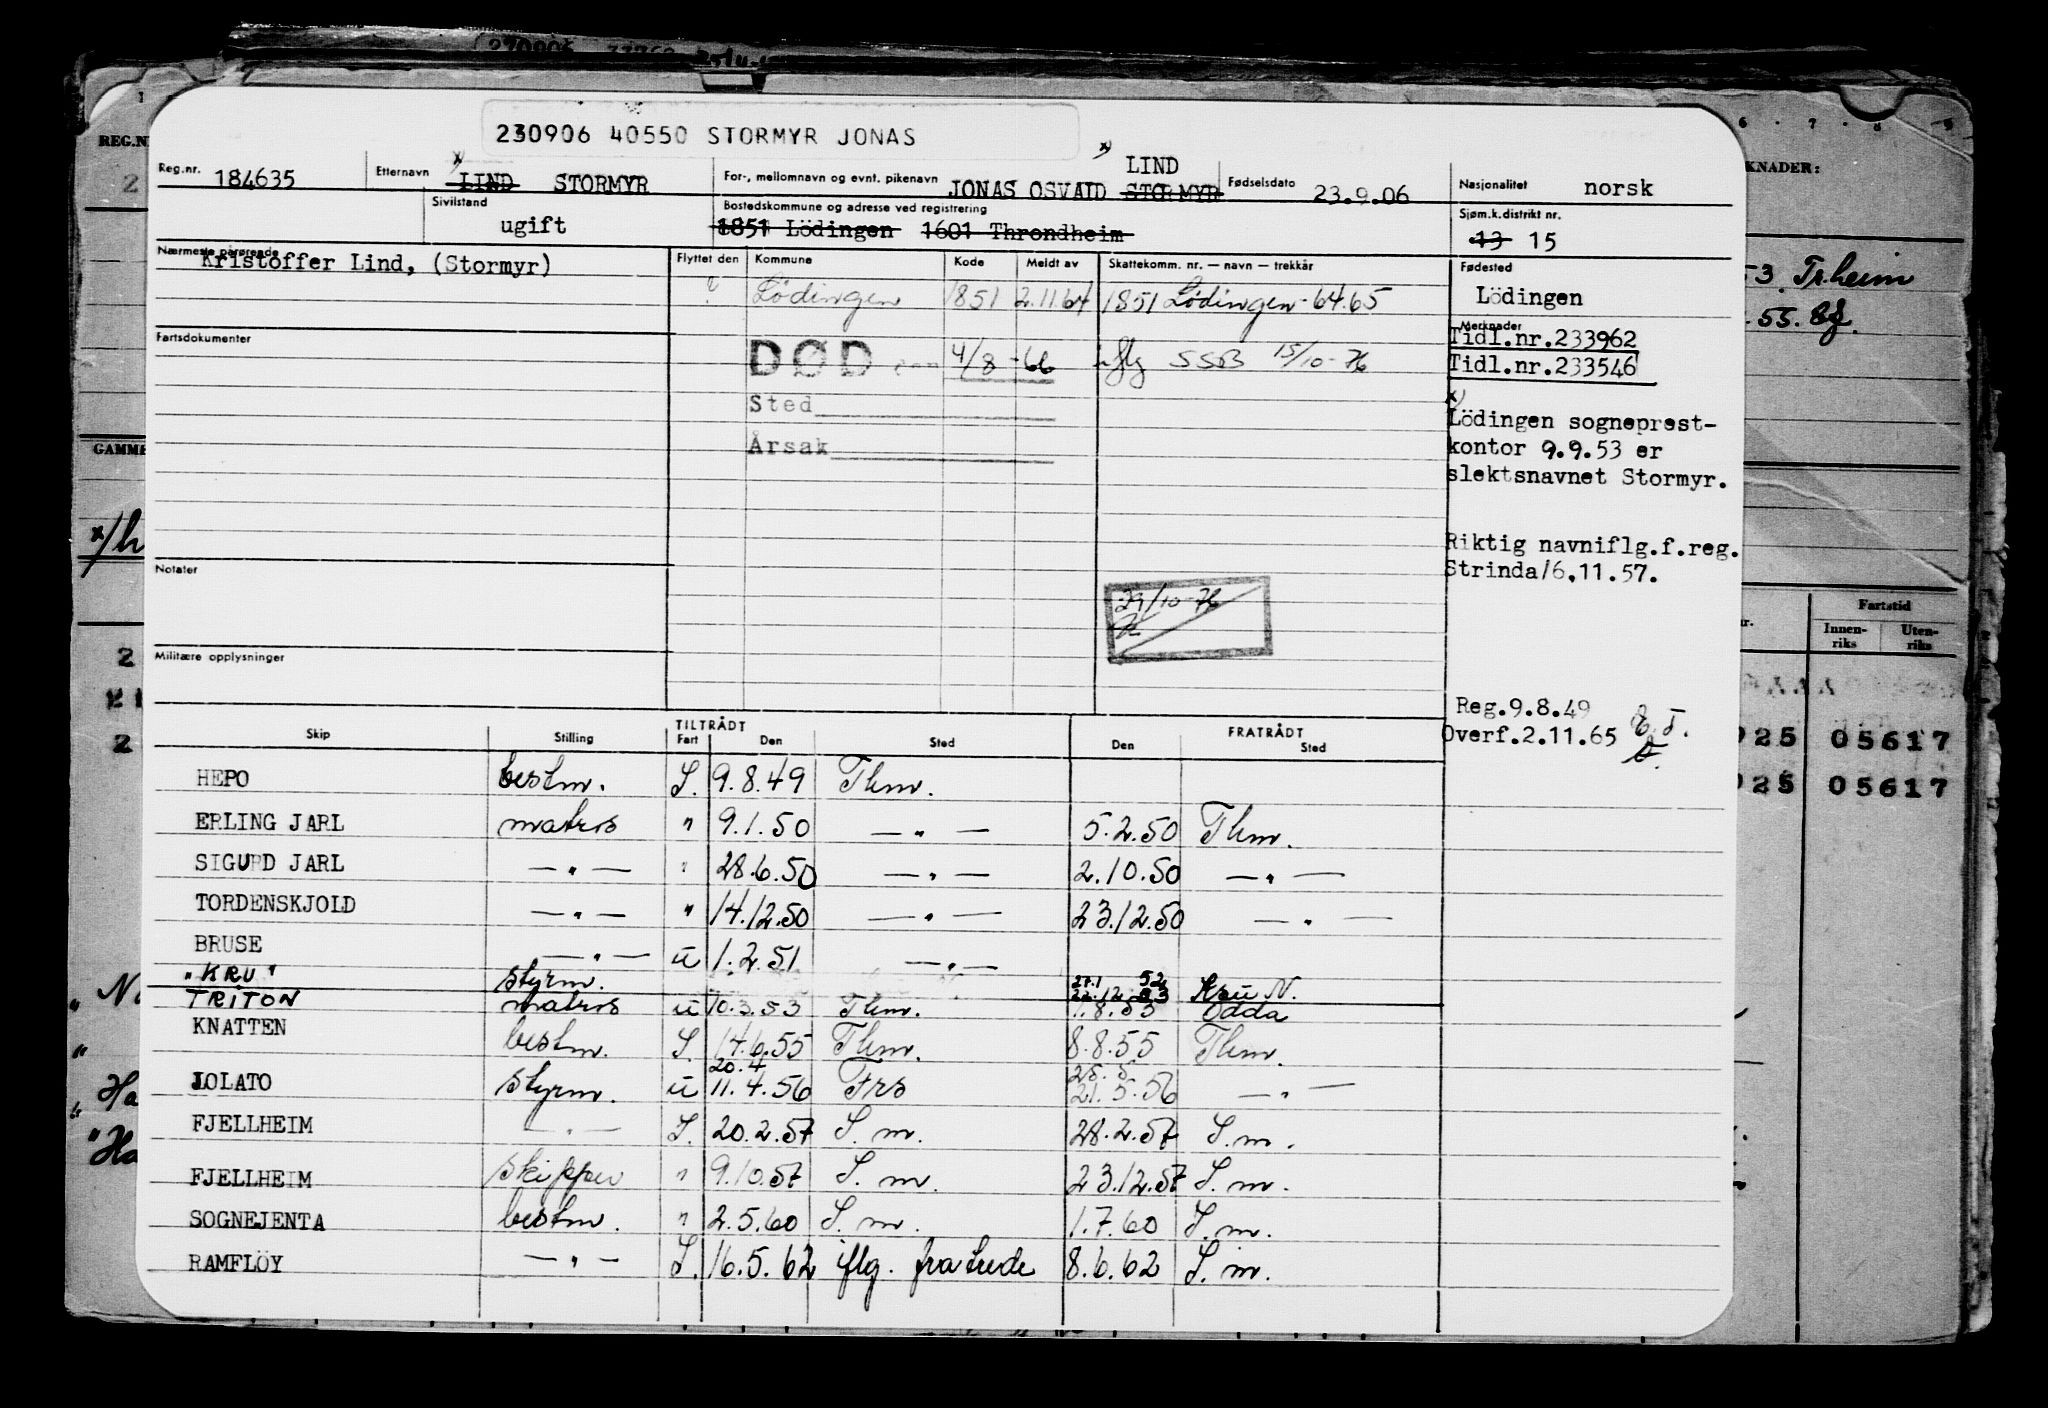 230906 40550 STORMYR JONAS
Reg.nr. 184635 Etternavn x) LIND STORMYR For-, mellomnavn og evnt. pikenavn JONAS OSVALD STORMYR x) LIND Fødselsdato 23.9.06 Nasjonalitet norsk
Sivilstand ugift Bostedskommune og adresse ved registrering 1851 Lödingen 1601 Throndheim Sjøm.k.distrikt nr. 13 15
Nærmeste pårørende Kristoffer Lind, (Stormyr)
Flyttet den Kommune Kode Meldt av Skattekomm. nr. — navn — trekkår
? Lödingen 1851 2.11.64 1851 Lödingen-64.65
Fødested
Lödingen
Fartsdokumenter
DØD den 4/8-66 iflg SSB 15/10-76
Sted
Årsak
Merknader
Tidl.nr.233962
Tidl.nr.233546
x)
Lödingen sogneprest-
kontor 9.9.53 er
slektsnavnet Stormyr.
Riktig navniflg.f.reg.
Strinda/6.11.57.
Notater
29/10-76
Militære opplysninger
Reg.9.8.49
Overf.2.11.65
Skip Stilling TILTRÅDT Fart Den Sted FRATRÅDT Den Sted
HEPO bestm. I. 9.8.49 Thm.
ERLING JARL matros " 9.1.50 — " — 5.2.50 Thm.
SIGURD JARL — " — " 28.6.50 — " — 2.10.50 — " —
TORDENSKJOLD — " — " 14.12.50 — " — 23.12.50 — " —
BRUSE — " — u 1.2.51 — " —
"KRU" styrm. 52 Kru N.
TRITON matros u 10.3.53 Thm. 1.8.53 Odda
KNATTEN bestm. I. 14.6.55 Thm. 8.8.55 Thm.
20.4 25.5
JOLATO styrm. u 11.4.56 Frs 21.5.56 — " —
FJELLHEIM — " — I. 20.2.57 I.m. 28.2.57 I.m.
FJELLHEIM skipper " 9.10.57 I.m. 23.12.57 I.m.
SOGNEJENTA bestm. " 2.5.60 I.m. 1.7.60 I.m.
RAMFLÖY — " — I. 16.5.62 iflg. fratrede 8.6.62 I.m.
REG.N
KNADER:
53 Tr.heim
.55.
GAMME
x/h
Fartstid
Innen-
riks
Uten-
riks
025 05617
025 05617